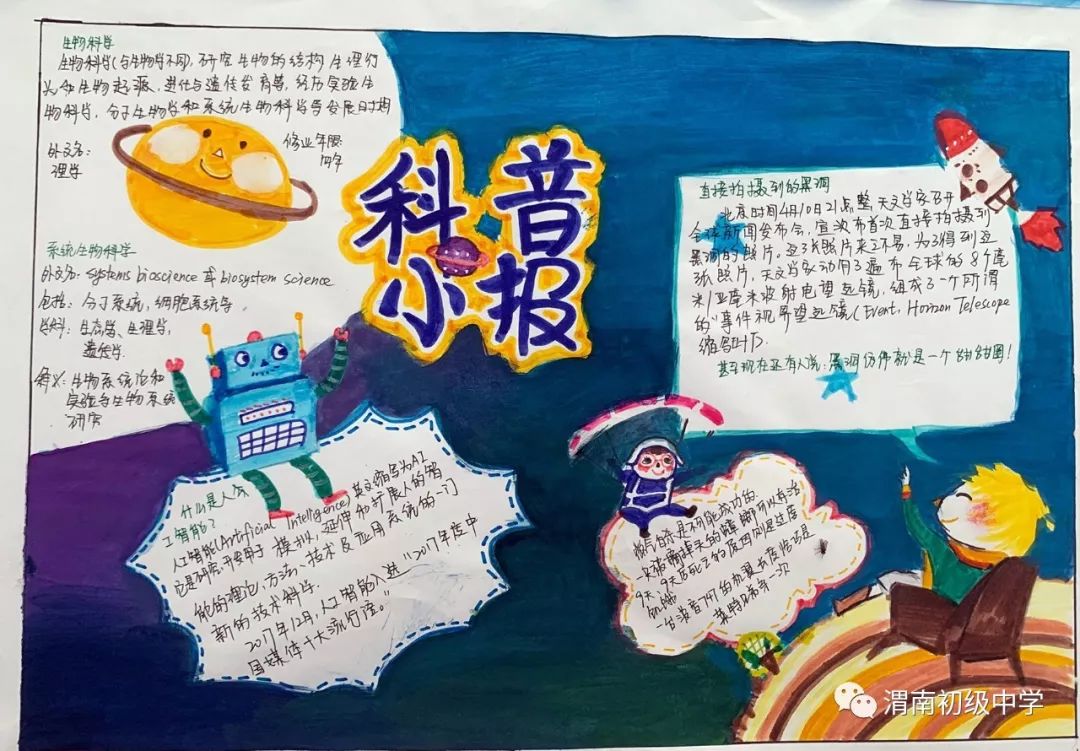 生物科学
生物科学(与生物学不同), 研究生物的结构 生理行
为和生物起源、进化与遗传发育等, 经历实验生
物科学, 分子生物学和系统生物科学等发展时期
外文名:
理学
修业年限:
四年
科普
小报
系统生物科学
外文名: systems bioscience 或 biosystem science
包括: 分子系统, 细胞系统学,
学科: 生态学、生理学,
遗传学.
释义: 生物系统论和
实验与生物系统
研究
直接拍摄到的黑洞
北京时间4月10日21点整, 天文学家召开
全球新闻发布会, 宣布首次直接拍摄到
黑洞的照片。这张照片来之不易, 为了得到这
张照片, 天文学家动用了遍布全球的8个毫
米/亚毫米波射电望远镜, 组成了一个所谓
的"事件视界望远镜(Event Horizon Telescope
缩写
甚至现在还有人说: 黑洞仿佛就是一个甜甜圈!
什么是人
工智能?
人工智能(Artificial Intelligence) 英文缩写为AI
它是研究、开发用于模拟、延伸和扩展人的智
能的理论、方法、技术及应用系统的一门
新的技术科学.
2017年12月, 人工智能入选"2017年度中
国媒体十大流行语。"
一只被
9天
9天后死亡的原因则是过度
饥饿
一台波音747的机翼长度恰巧是
莱特兄弟第一次
渭南初级中学